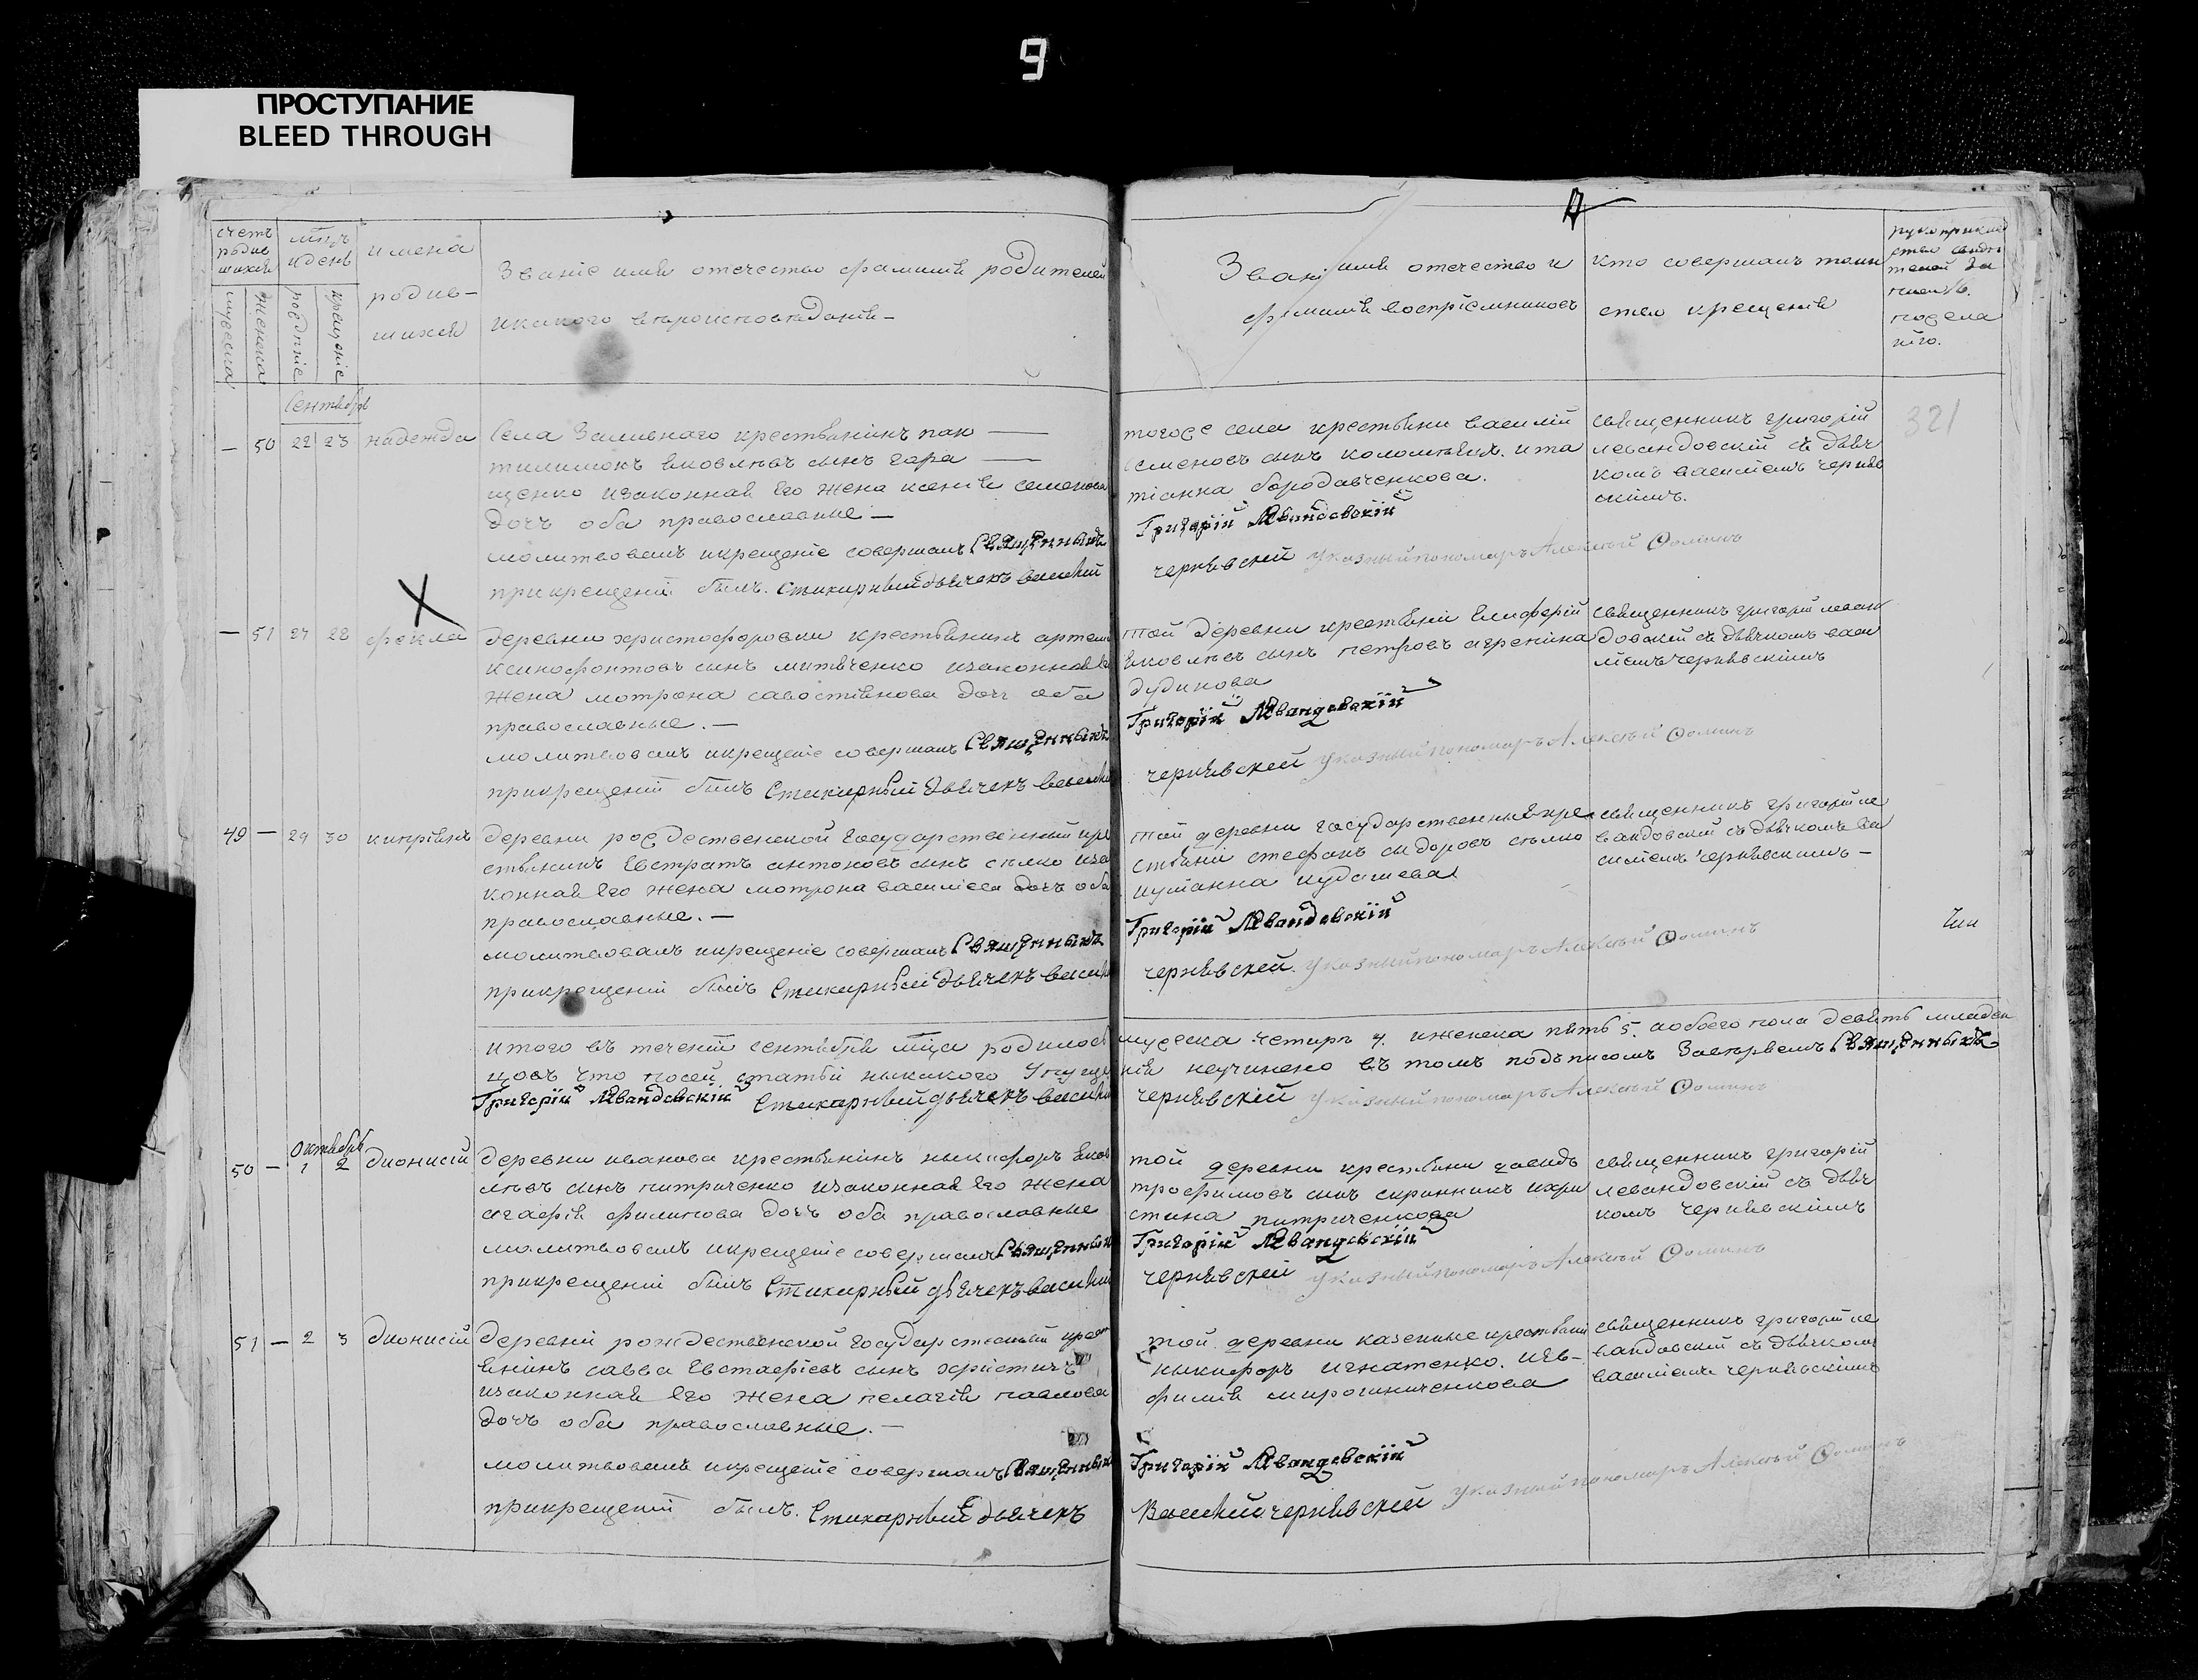 9
ПРОСТУПАНИЕ
BLEED THROUGH
счетъ родившихся
мужеска
женска
мцъ и день
рождніе
крещеніе
имена
родив-
шихся
Званіе имя отечество фамилія родителей
и какого вѣроисповѣданія –
Званіе имя отечество и
фамилія воспріемниковъ
кто совершалъ таин
ство крещенія
321
Сентября
— 50 22 23 надежда
Села Заливного крестьянинъ пан —
тилимонъ яковлевъ сынъ гара —
щенко изаконная Его жена ксенія семенова
дочь оба православные —
молитвовалъ икрещеніе совершалъ Священникъ
прикрещеніи былъ. Стихарный дьячекъ василий
тогоже села крестьяни василій
семеновъ сынъ коломыецъ. ита
тіанна бородавченкова.
Григорій Левандовскій
чернявский указный пономарь Алексѣй Фоминъ
священникъ григорій
левандовскій съ дьяч
комъ василіемъ черняв
скимъ.
— 51 27 28 фекла
деревни христофоровки крестьянинъ артемъ
ксинофонтовъ сынъ митяченко изаконная Его
жена мотрона савостянова дочь оба
православные. —
молитвовалъ икрещеніе совершалъ Священникъ
прикрещеніи былъ Стихарный Дьячекъ василий
той деревни крестьяни Елиферій
яковлевъ сынъ петровъ агрепина
дудинова
Григорій Левандовскій
чернявский указный пономарь Алексѣй Фоминъ
священникъ григорій леван
довскій съ дьячкомъ васи
ліемъ чернявскимъ
49 — 29 30 кипріянъ
деревни рождественской государственный кре
стьянинъ Евстратъ антоновъ сынъ иза
конная Его жена мотрона василіева дочь оба
православные. —
молитвовалъ икрещеніе совершалъ Священникъ
прикрещеніи былъ Стихарный Дьячекъ василий
той деревни государственные кре
стьяни стефанъ сидоровъ
иуліанна кудашева
Григорій Левандовскій
чернявский. указный пономарь Алексѣй Фоминъ
священникъ григорій ле
вандовскій съ дьячкомъ ва
силіемъ чернявскимъ —
итого въ теченіи сентября мца родилось мужеска четыри 4. иженска пять 5. аобоего пола девять младен
цовъ что посей статьи никакого упуще нія неучинено въ томъ подъписомъ Завѣряемъ Священникъ
Григорій Левандовскій Стихарный дьячекъ василий чернявскій указный пономарь Алексѣй Фоминъ
Октября
50 — 1 2 дионисій
деревни иванова крестьянинъ никифоръ яков
левъ сынъ питриченко изаконная Его жена
агафія филипова дочь оба православные
молитвовалъ икрещеніе совершалъ Священникъ
прикрещеніи былъ Стихарный дьячекъ василий
той деревни крестьяни давидъ
трофимовъ сынъ скрипникъ ихри
стина питриченкова
Григорій Левандовскій
чернявский указный пономарь Алексѣй Фоминъ
священникъ григорій
левандовскій съ дьяч
комъ чернявскимъ
51 — 2 3 дионисій
деревни рождественской Государственый крест
янинъ савва Евстафіевъ сынъ христичъ
изаконная Его жена пелагія павлова
дочь оба православные. —
молитвовалъ икрещеніе совершалъ Священникъ
прикрещеніи былъ. Стихарный дьячекъ
той деревни казенные крестьяни
никифоръ игнатенко. иев-
фимія мирошниченкова
Григорій Левандовскій
Василий чернявский указный пономарь Алексѣй Фоминъ
священникъ григорій ле
вандовскій съ дьячкомъ
василіемъ чернявскимъ